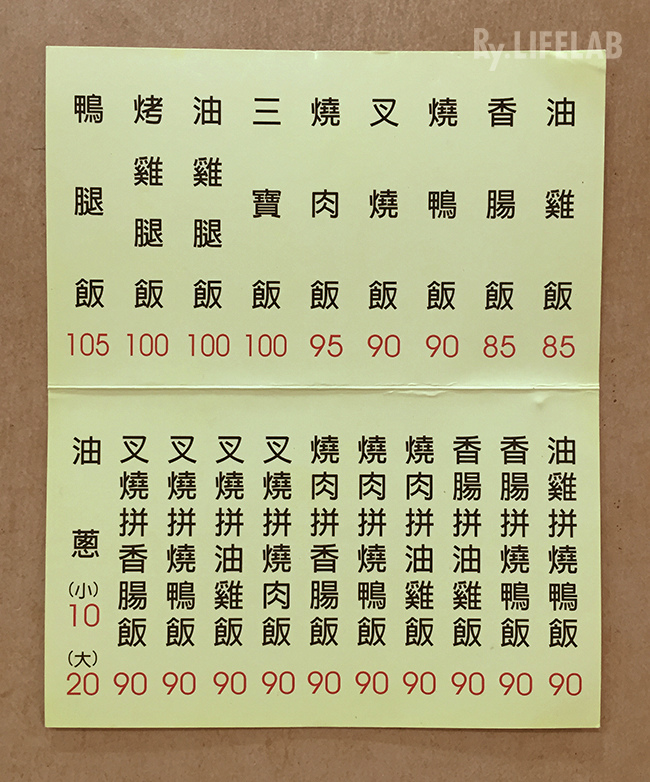 Ry.LIFELAB
油雞飯 85
香腸飯 85
燒鴨飯 90
叉燒飯 90
燒肉飯 95
三寶飯 100
油雞腿飯 100
烤雞腿飯 100
鴨腿飯 105
油雞拼燒鴨飯 90
香腸拼燒鴨飯 90
香腸拼油雞飯 90
燒肉拼油雞飯 90
燒肉拼燒鴨飯 90
燒肉拼香腸飯 90
叉燒拼燒肉飯 90
叉燒拼油雞飯 90
叉燒拼燒鴨飯 90
叉燒拼香腸飯 90
油蔥 (小) 10 (大) 20